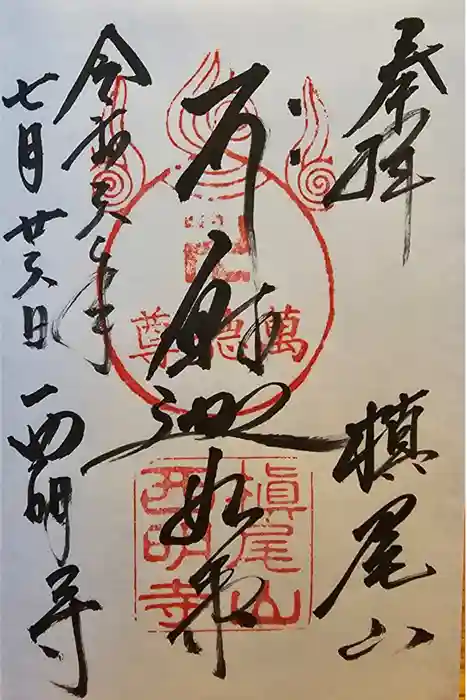 奉拝
槇尾山
釈迦如来
萬德尊
槇尾山
西明寺
令和六年
七月廿六日
西明寺